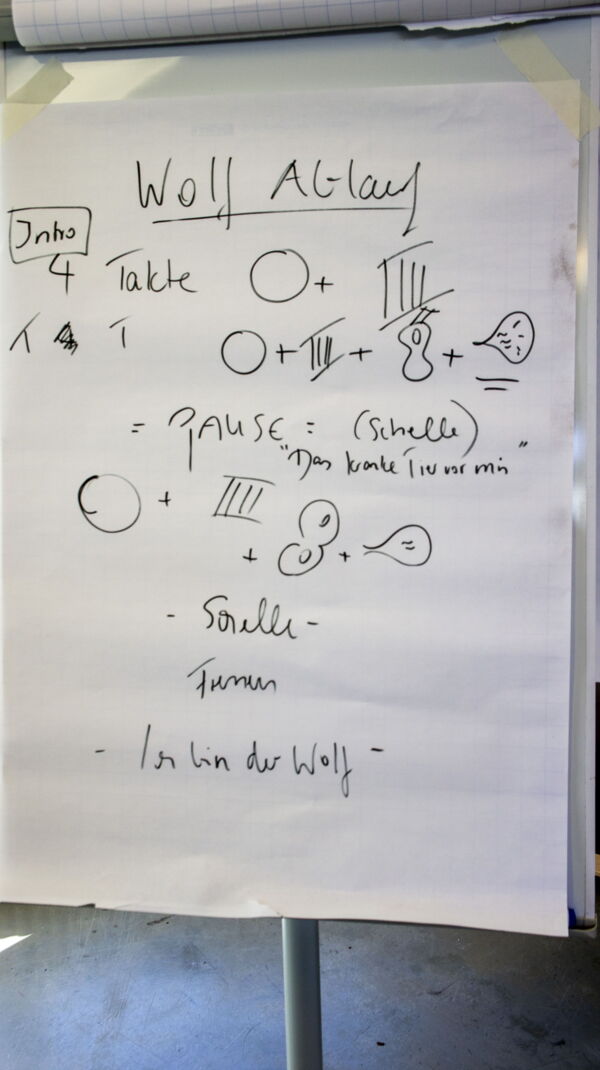 Wolf Ablauf
Intro
4 Takte +
T T + + +
= PAUSE = (Schelle)
"Das kranke Tier vor mir"
+
+ +
- Schelle -
- Ich bin der Wolf -